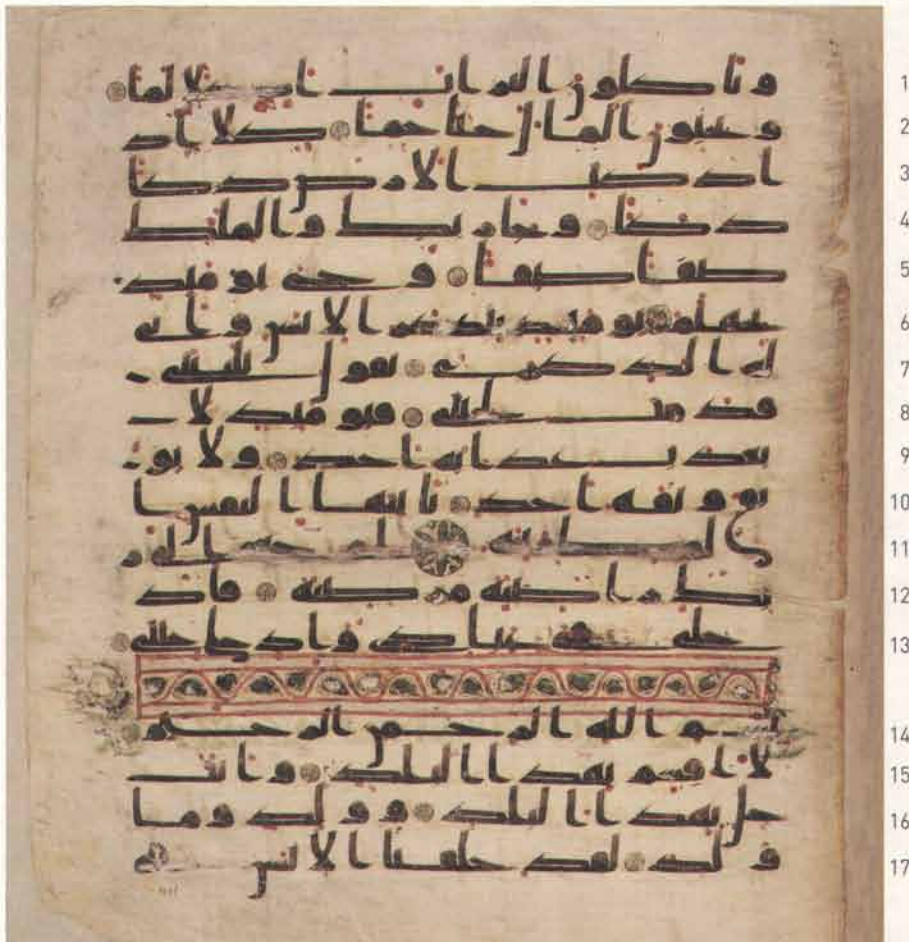 وتاكلون التراث اكلا لما 1
وتحبون المال حبا جما كلا اذ 2
ا دكت الارض دكا 3
دكا وجاء ربك والملك 4
صفا صفا وجىء يومئذ 5
بجهنم يومئذ يتذكر الانسن وانى 6
له الذكرى يقول يليتنى 7
قدمت لحياتى فيومئذ لا 8
يعذب عذابه احد ولا يو 9
ثق وثقه احد يايتها النفس ا 10
لمطمئنة ارجعى الى ر 11
بك راضية مرضية فاد 12
خلى فى عبدى وادخلى جنتى 13
بسم الله الرحمن الرحيم 14
لا اقسم بهذا البلد وانت 15
حل بهذا البلد ووالد وما 16
ولد لقد خلقنا الانسن فى 17